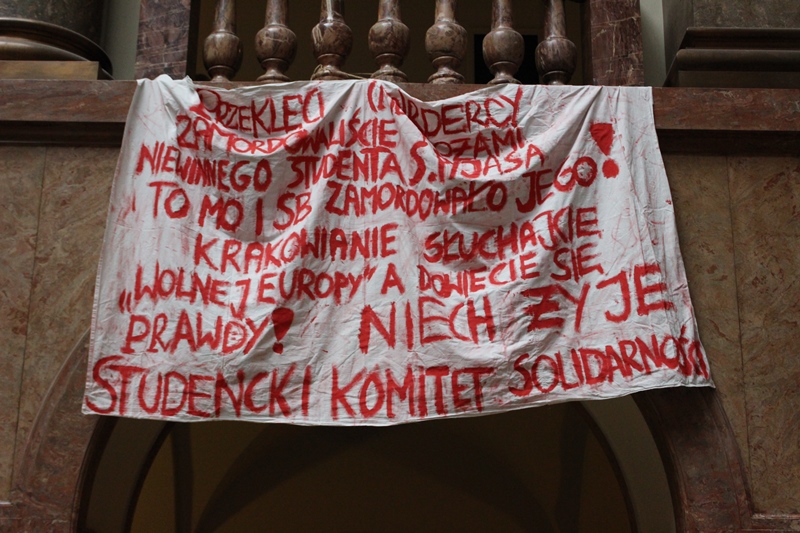 PRZEKLĘCI MORDERCY
ZAMORDOWALIŚCIE
NIEWINNEGO STUDENTA S. PYJASA
TO MO I SB ZAMORDOWAŁO JEGO!
KRAKOWIANIE SŁUCHAJCIE
„WOLNEJ EUROPY" A DOWIECIE SIĘ
PRAWDY! NIECH ŻYJE
STUDENCKI KOMITET SOLIDARNOŚCI